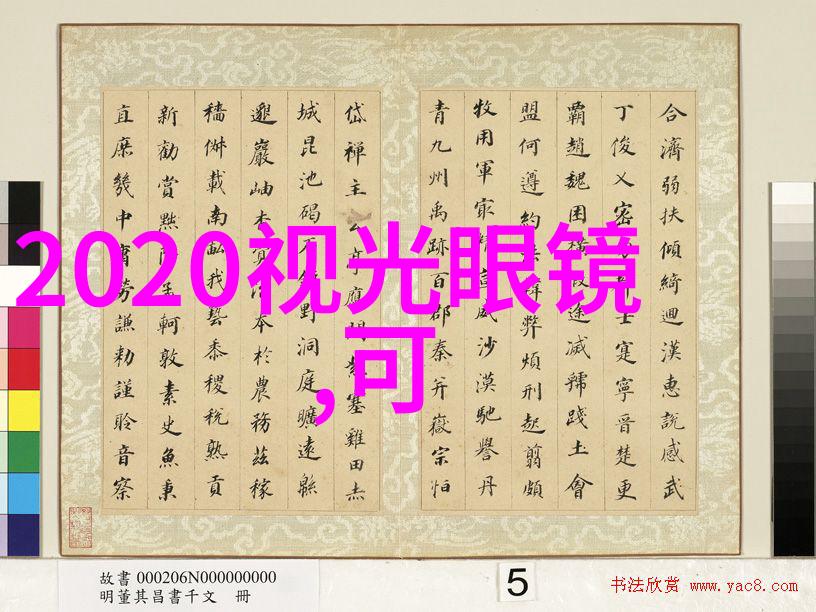 2020视光眼镜
,可
合濟弱扶傾綺迴漢惠說感武
丁俊乂密士寔寧晉楚更
霸趙魏困橫途滅虢踐土會
盟何遵約弊煩刑起翦頗
牧用軍宣威沙漠馳譽丹
青九州禹跡百郡秦并嶽宗
岱禪主云亭門紫塞雞田赤
城昆池碣石野洞庭曠遠緜
邈巖岫杳冥治本於農務茲稼
穡俶載南畝我藝黍稷稅熟貢
新勸賞黜陟孟軻敦素史魚秉
直庶幾中庸勞謙勅謹聆音察
故書 000206N000000000
明董其昌書千文 冊
5
书法欣赏 www.yac8.com